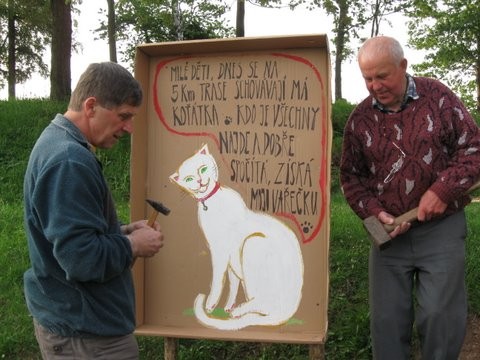 MILÉ DĚTI, DNES SE NA
5 Km TRASE SCHOVÁVAJÍ MÁ
KOŤÁTKA. KDO JE VŠECHNY
NAJDE A DOBŘE
SPOČÍTÁ, ZÍSKÁ
MOJI VAŘEČKU